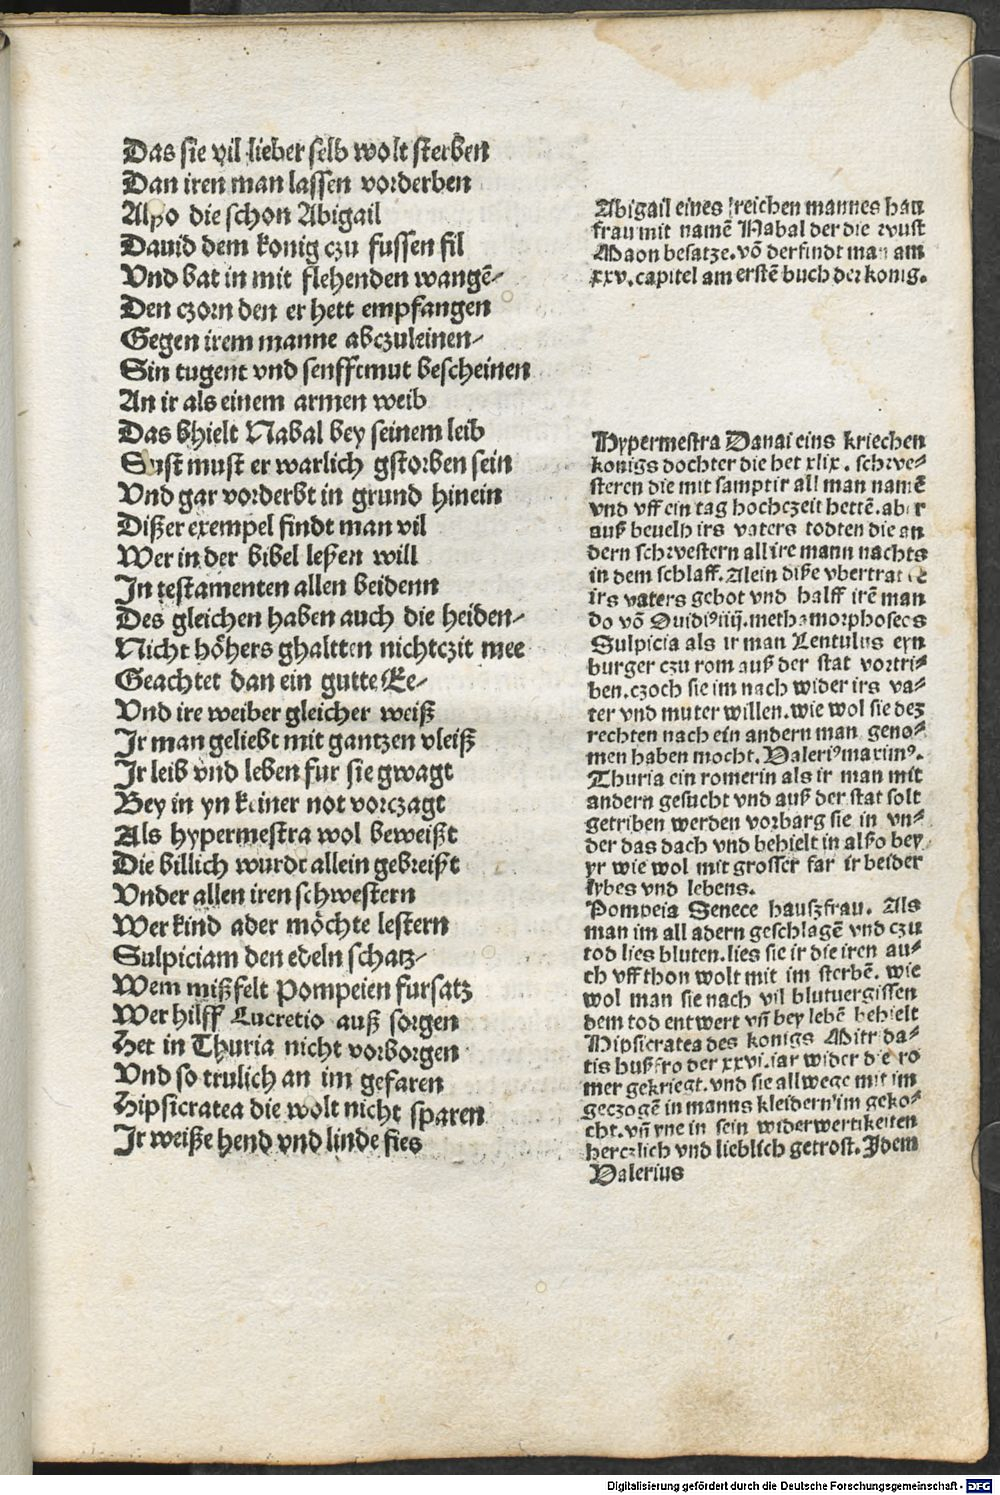 Das sie vil lieber selb wolt sterben
Dan iren man lassen vorderben
Alßo die schon Abigail
Dauid dem konig czu fussen fil
Vnd bat in mit flehenden wangē⸗
Den czorn den er hett empfangen
Gegen irem manne abczuleinen⸗
Sin tugent vnd senfftmut bescheinen
An ir als einem armen weib
Das bhielt Nabal bey seinem leib
Sust must er warlich gstorben sein
Vnd gar vorderbt in grund hinein
Dißer exempel findt man vil
Wer in der bibel leßen will
In testamenten allen beidenn
Des gleichen haben auch die heiden⸗
Nicht höhers ghaltten nichtczit mee
Geachtet dan ein gutte Ee⸗
Vnd ire weiber gleicher weiß
Ir man geliebt mit gantzen vleiß
Ir leib vnd leben fur sie gwagt
Bey in yn keiner not vorczagt
Als hypermestra wol beweißt
Die billich wurdt allein gebreißt
Vnder allen iren schwestern
Wer kind ader möchte lestern
Sulpiciam den edeln schatz⸗
Wem mißfelt Pompeien fursatz
Wer hilff Lucretio auß sorgen
Het in Thuria nicht vorborgen
Vnd so trulich an im gefaren
Hipsicratea die wolt nicht sparen
Ir weiße hend vnd linde fies
Abigail eines reichen mannes hau
frau mit namē Nabal der die wust
Maon besatze. vō der findt man am
xxv. capitel am erstē buch der konig.
Hypermestra Danai eins kriechen
konigs dochter die het xlix. schwe⸗
steren die mit sampt ir all man namē
vnd vff ein tag hochczeit hettē. aber
auß beuelh irs vaters todten die an
dern schwestern all ire mann nachts
in dem schlaff. Alein diße vbertrat
irs vaters gebot vnd halff irē man
do vō Ouidiꝰ iiij. methamorphoseos
Sulpicia als ir man Lentulus eyn
burger czu rom auß der stat vortri⸗
ben. czoch sie im nach wider irs va⸗
ter vnd muter willen. wie wol sie dez
rechten nach ein andern man geno⸗
men haben mocht. Valeriꝰ maximꝰ.
Thuria ein romerin als ir man mit
andern gesucht vnd auß der stat solt
getriben werden vorbarg sie in vn⸗
der das dach vnd behielt in alßo bey
yr wie wol mit grosser far ir beider
lybes vnd lebens.
Pompeia Senece hauszfrau. Als
man im all adern geschlagē vnd czu
tod lies bluten. lies sie ir die iren au⸗
ch vff thon wolt mit im sterbē. wie
wol man sie nach vil blutuergissen
dem tod entwert vn̄ bey lebē behielt
Hipsicratea des konigs Mitrida⸗
tis hußfro der xxvi. iar wider die ro
mer gekriegt. vnd sie allwege mit im
geczogē in manns kleidern im geko⸗
cht. vn̄ yne in sein widerwertikeiten
herczlich vnd lieblich getrost. Idem
Valerius
Digitalisierung gefördert durch die Deutsche Forschungsgemeinschaft - DFG